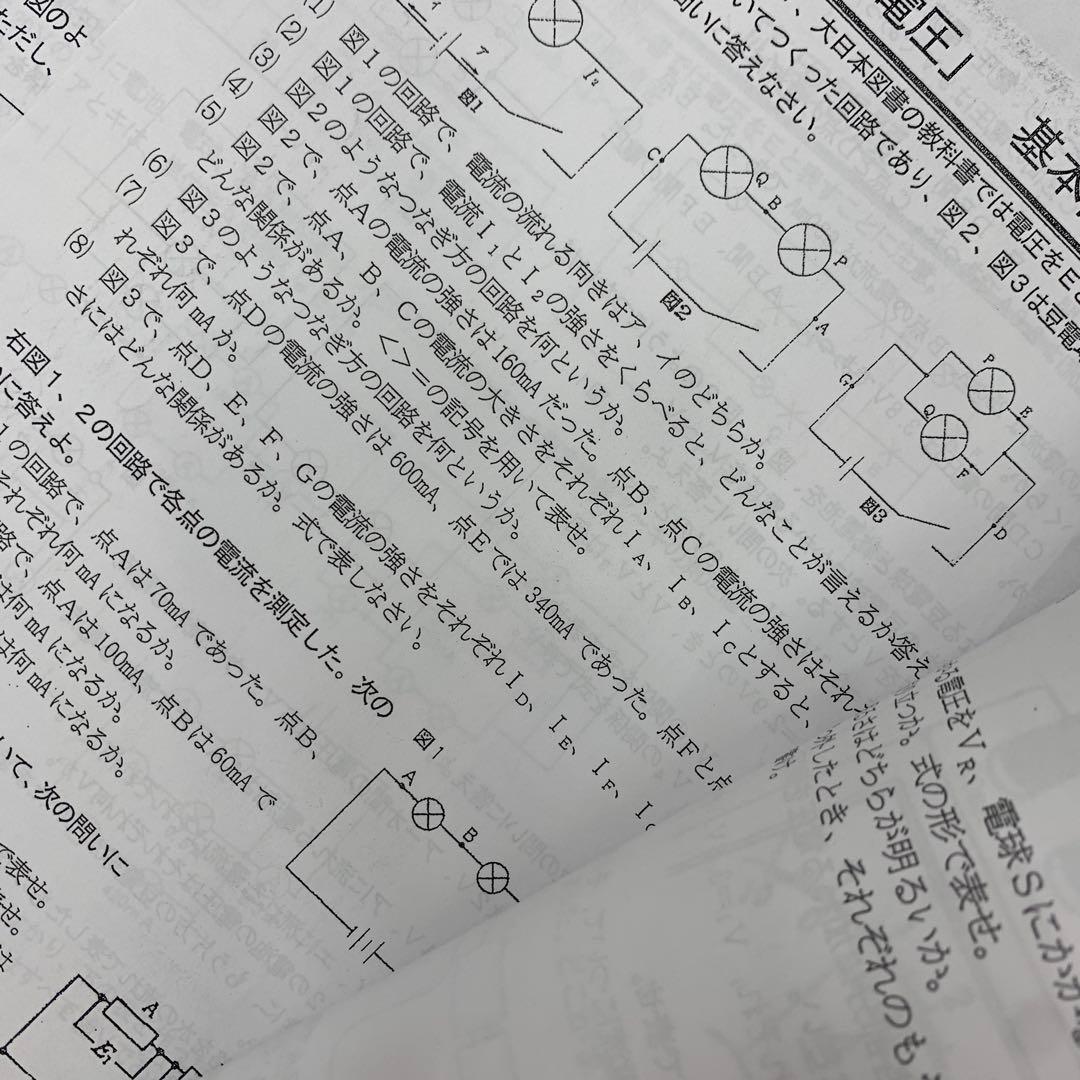 図のよ
ただし、
電圧」
基本
、大日本図書の教科書では電圧をEと
いてつくった回路であり、図2、図3は豆電
問いに答えなさい。
I₂
図1
C
Q
B
P
A
図2
G
P
E
Q
F
D
図3
(1) 図1の回路で、電流の流れる向きはア、イのどちらか。
(2) 図1の回路で、電流I₁とI₂の強さをくらべると、どんなことが言えるか答え
(3) 図2のようなつなぎ方の回路を何というか。
(4) 図2で、点Aの電流の強さは160mAだった。点B、点Cの電流の強さはそれ
(5) 図2で、点A、B、Cの電流の大きさをそれぞれIA、IB、ICとすると、
どんな関係があるか。<>=の記号を用いて表せ。
(6) 図3のようなつなぎ方の回路を何というか。
(7) 図3で、点Dの電流の強さは600mA、点Eでは340mAであった。点Fと点
れぞれ何mAか。
(8) 図3で、点D、E、F、Gの電流の強さをそれぞれID、IE、IF、I
さにはどんな関係があるか。式で表しなさい。
右図1、2の回路で各点の電流を測定した。次の
に答えよ。
1の回路で、点Aは70mAであった。点B、
それぞれ何mAになるか。
路で、点Aは100mA、点Bは60mAで
は何mAになるか。
は何mAになるか。
いて、次の問いに
で表せ。
図1
A
B
A
E₁
電圧をVR、電球Sにかか
つか。式の形で表せ。
さはどちらが明るいか。
したとき、それぞれのも